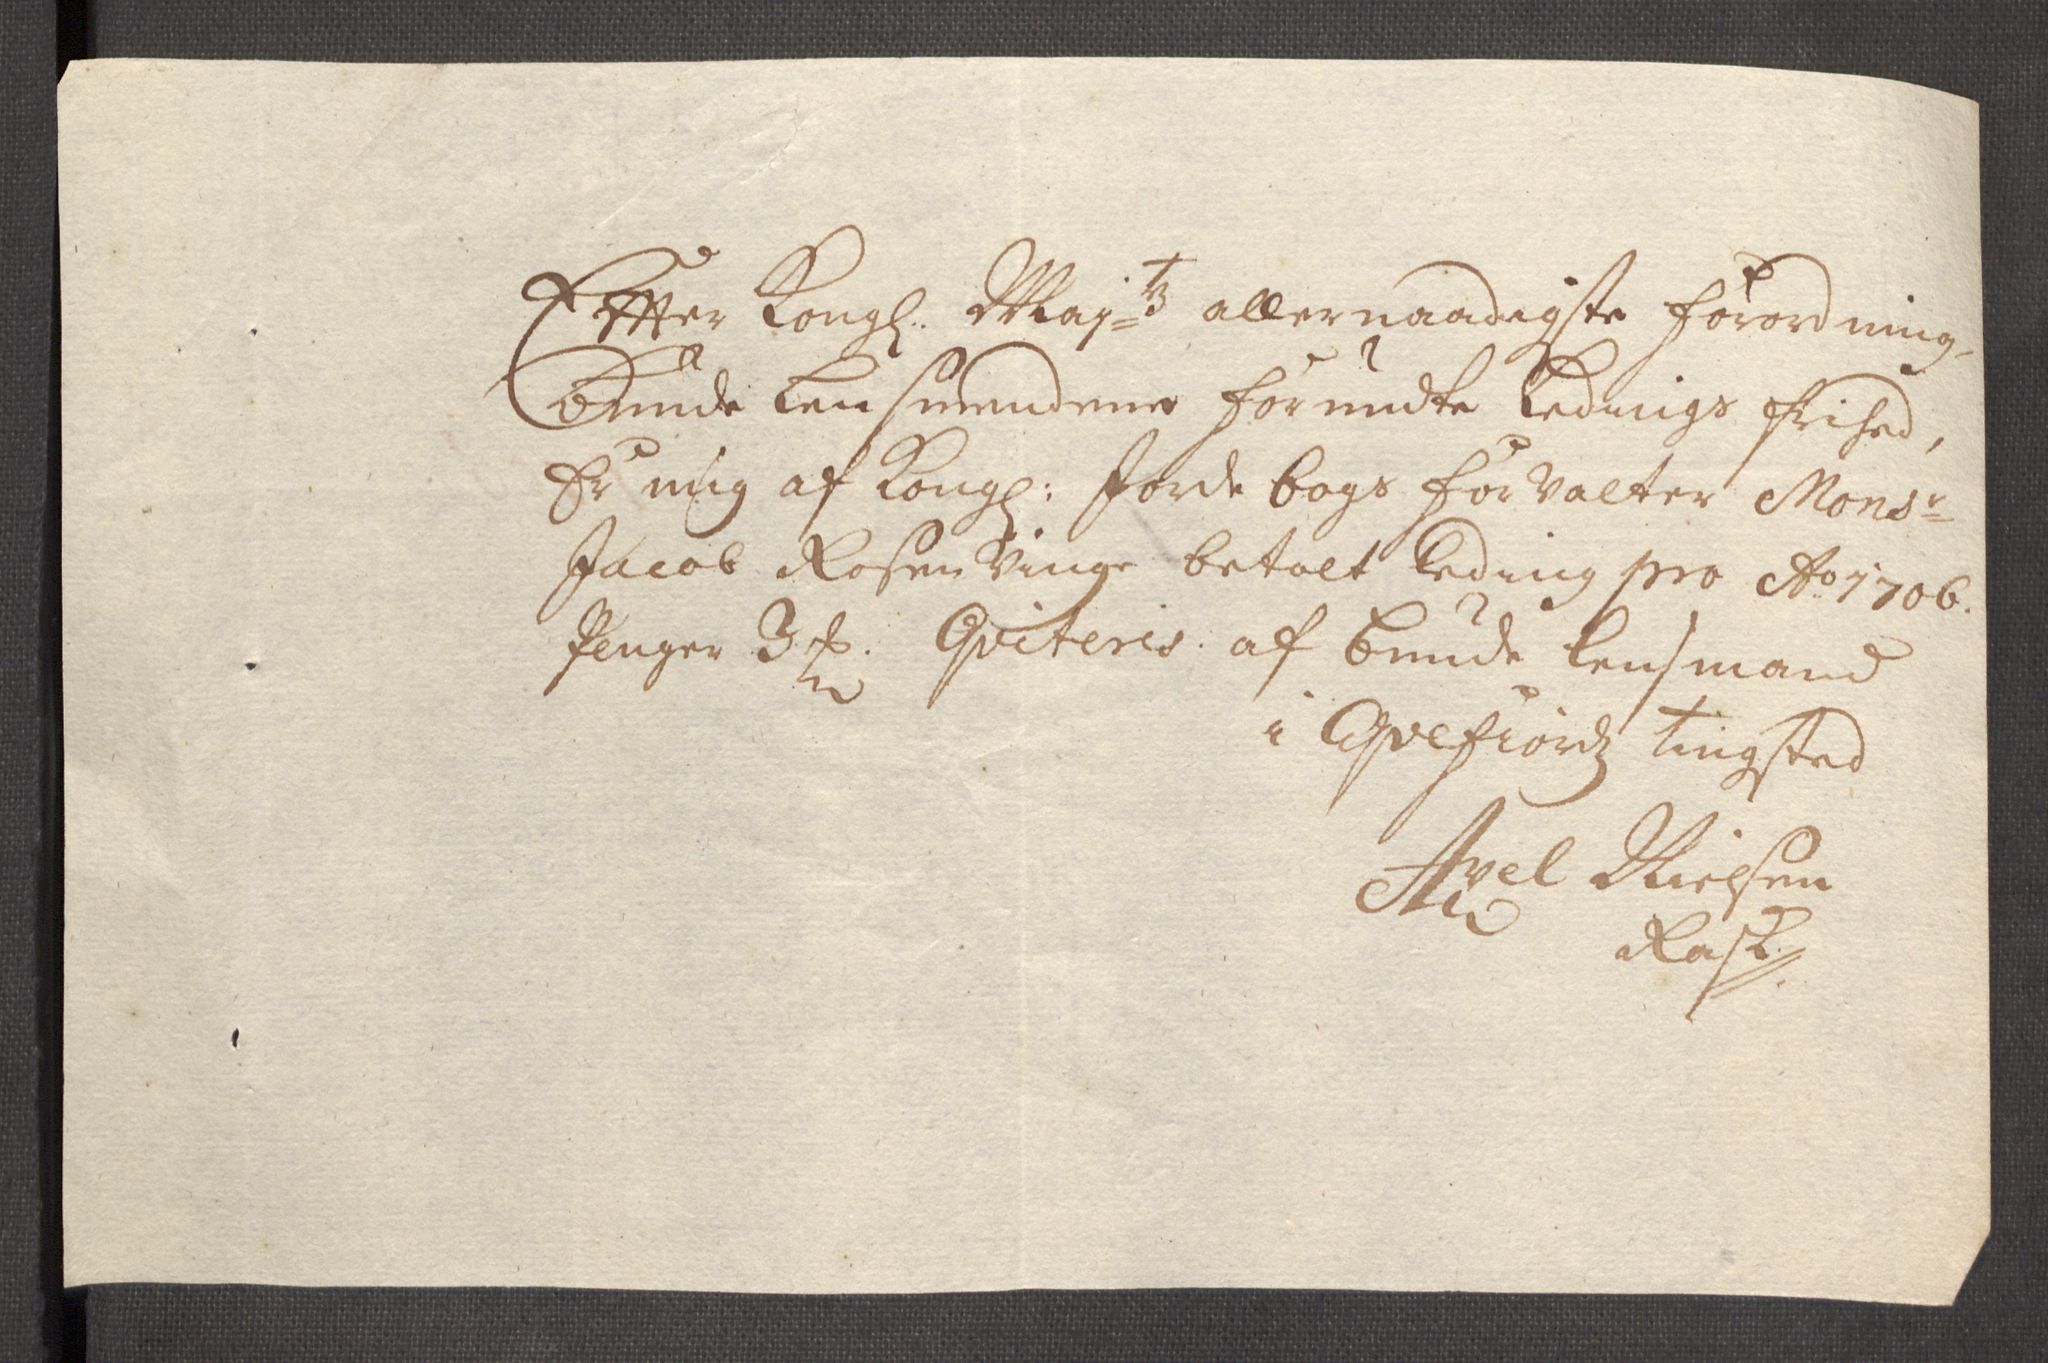 Effter Kongl. Maj:ts allernaadigste forordning,
Bunde Lensmendene forundte Ledings frihed,
Er mig af Kongl: Jorde bogs forvalter Monsr
Jacob Rosen Vinge betalt Leding pro Ao 1706.
Penger 3 Qviteris af Bunde Lensmand
i Qvefiordz tingsted
Axel Nielsen
Rask.